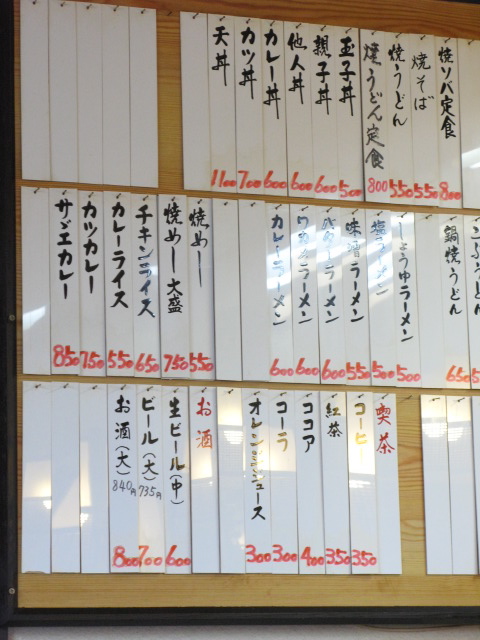 焼ソバ定食 800
焼そば 550
焼うどん 550
焼うどん定食 800
玉子丼 500
親子丼 600
他人丼 600
カレー丼 600
カツ丼 700
天丼 1100
鍋焼うどん 650
しょうゆラーメン 500
塩ラーメン 500
味噌ラーメン 550
ラーメン 600
ワカメラーメン 600
カレーラーメン 600
焼めし 550
焼めし大盛 750
チキンライス 650
カレーライス 550
カツカレー 750
サザエカレー 850
喫茶
コーヒー 350
紅茶 350
ココア 400
コーラ 300
オレンジジュース 300
お酒
生ビール(中) 600
ビール(大) 735円 700
お酒(大) 840円 800